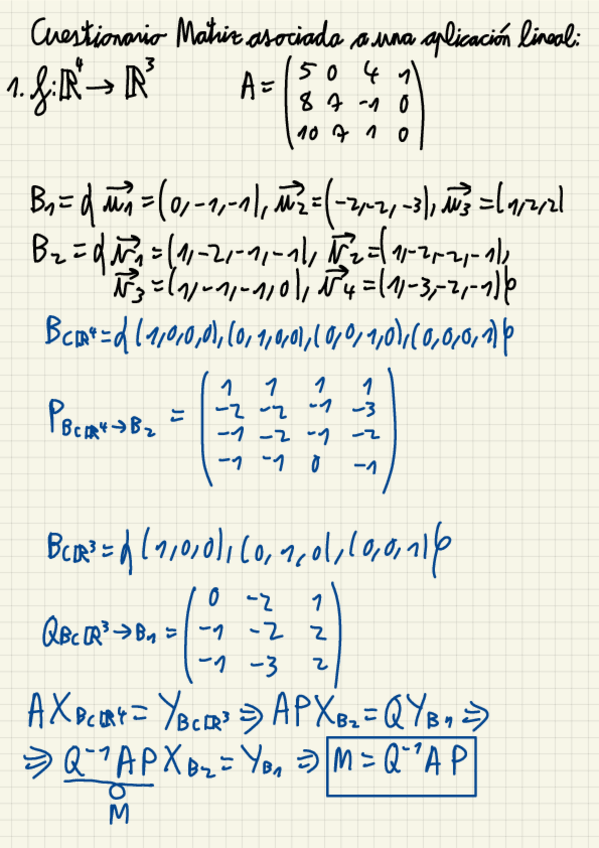 Cuestionario Matriz asociada a una aplicación lineal:
1. f: ℝ⁴ → ℝ³ A = (5 0 4 1
8 7 -1 0
10 7 1 0)
B₁ = { u⃗₁ = (0, -1, -1), u⃗₂ = (-2, -2, -3), u⃗₃ = (1, 2, 2)
B₂ = { v⃗₁ = (1, -2, -1, -1), v⃗₂ = (1, -2, -2, -1),
v⃗₃ = (1, -1, -1, 0), v⃗₄ = (1, -3, -2, -1) }
B_Cℝ⁴ = { (1,0,0,0), (0,1,0,0), (0,0,1,0), (0,0,0,1) }
P_BCℝ⁴→B₂ = (1 1 1 1
-2 -2 -1 -3
-1 -2 -1 -2
-1 -1 0 -1)
B_Cℝ³ = { (1,0,0), (0,1,0), (0,0,1) }
Q_BCℝ³→B₁ = (0 -2 1
-1 -2 2
-1 -3 2)
AX_BCℝ⁴ = Y_BCℝ³ ⇒ APX_B₂ = QY_B₁ ⇒
⇒ Q⁻¹AP X_B₂ = Y_B₁ ⇒ M = Q⁻¹AP
M